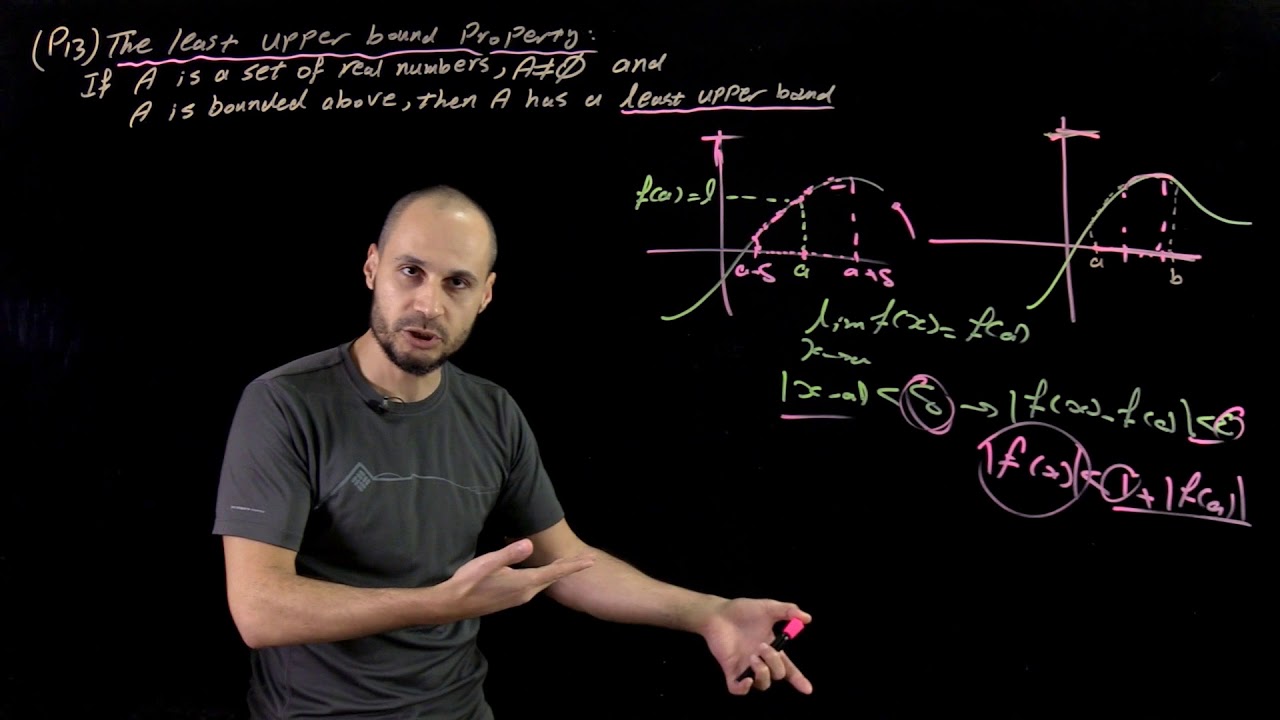 (P13) The least upper bound Property:
If A is a set of real numbers, A≠∅ and
A is bounded above, then A has a least upper bound
f(a)=l
a-δ a a+δ
a b
lim f(x) = f(a)
x→a
|x-a| < δ → |f(x)-f(a)| < ε
|f(x)| < 1 + |f(a)|